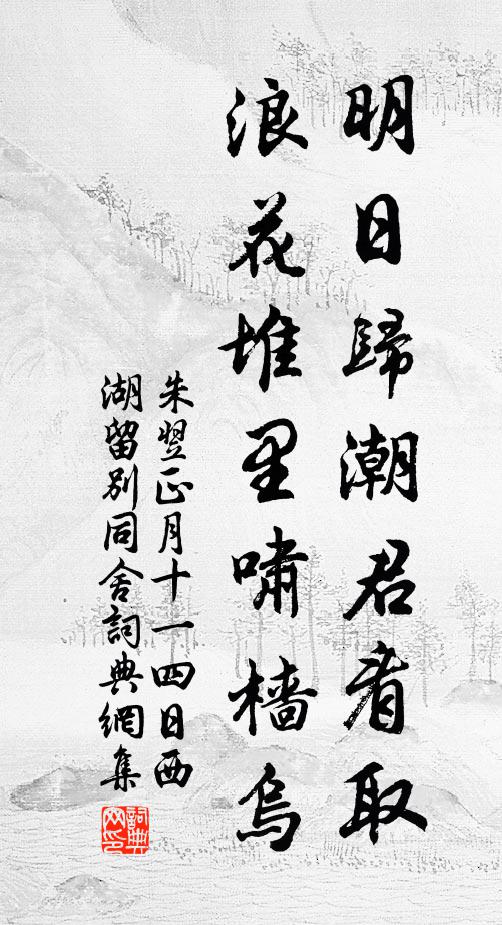 明日歸潮君看取
浪花堆里嘯檣烏
朱翌正月十一四日西
湖留別同舍詞典網集
詞典網印